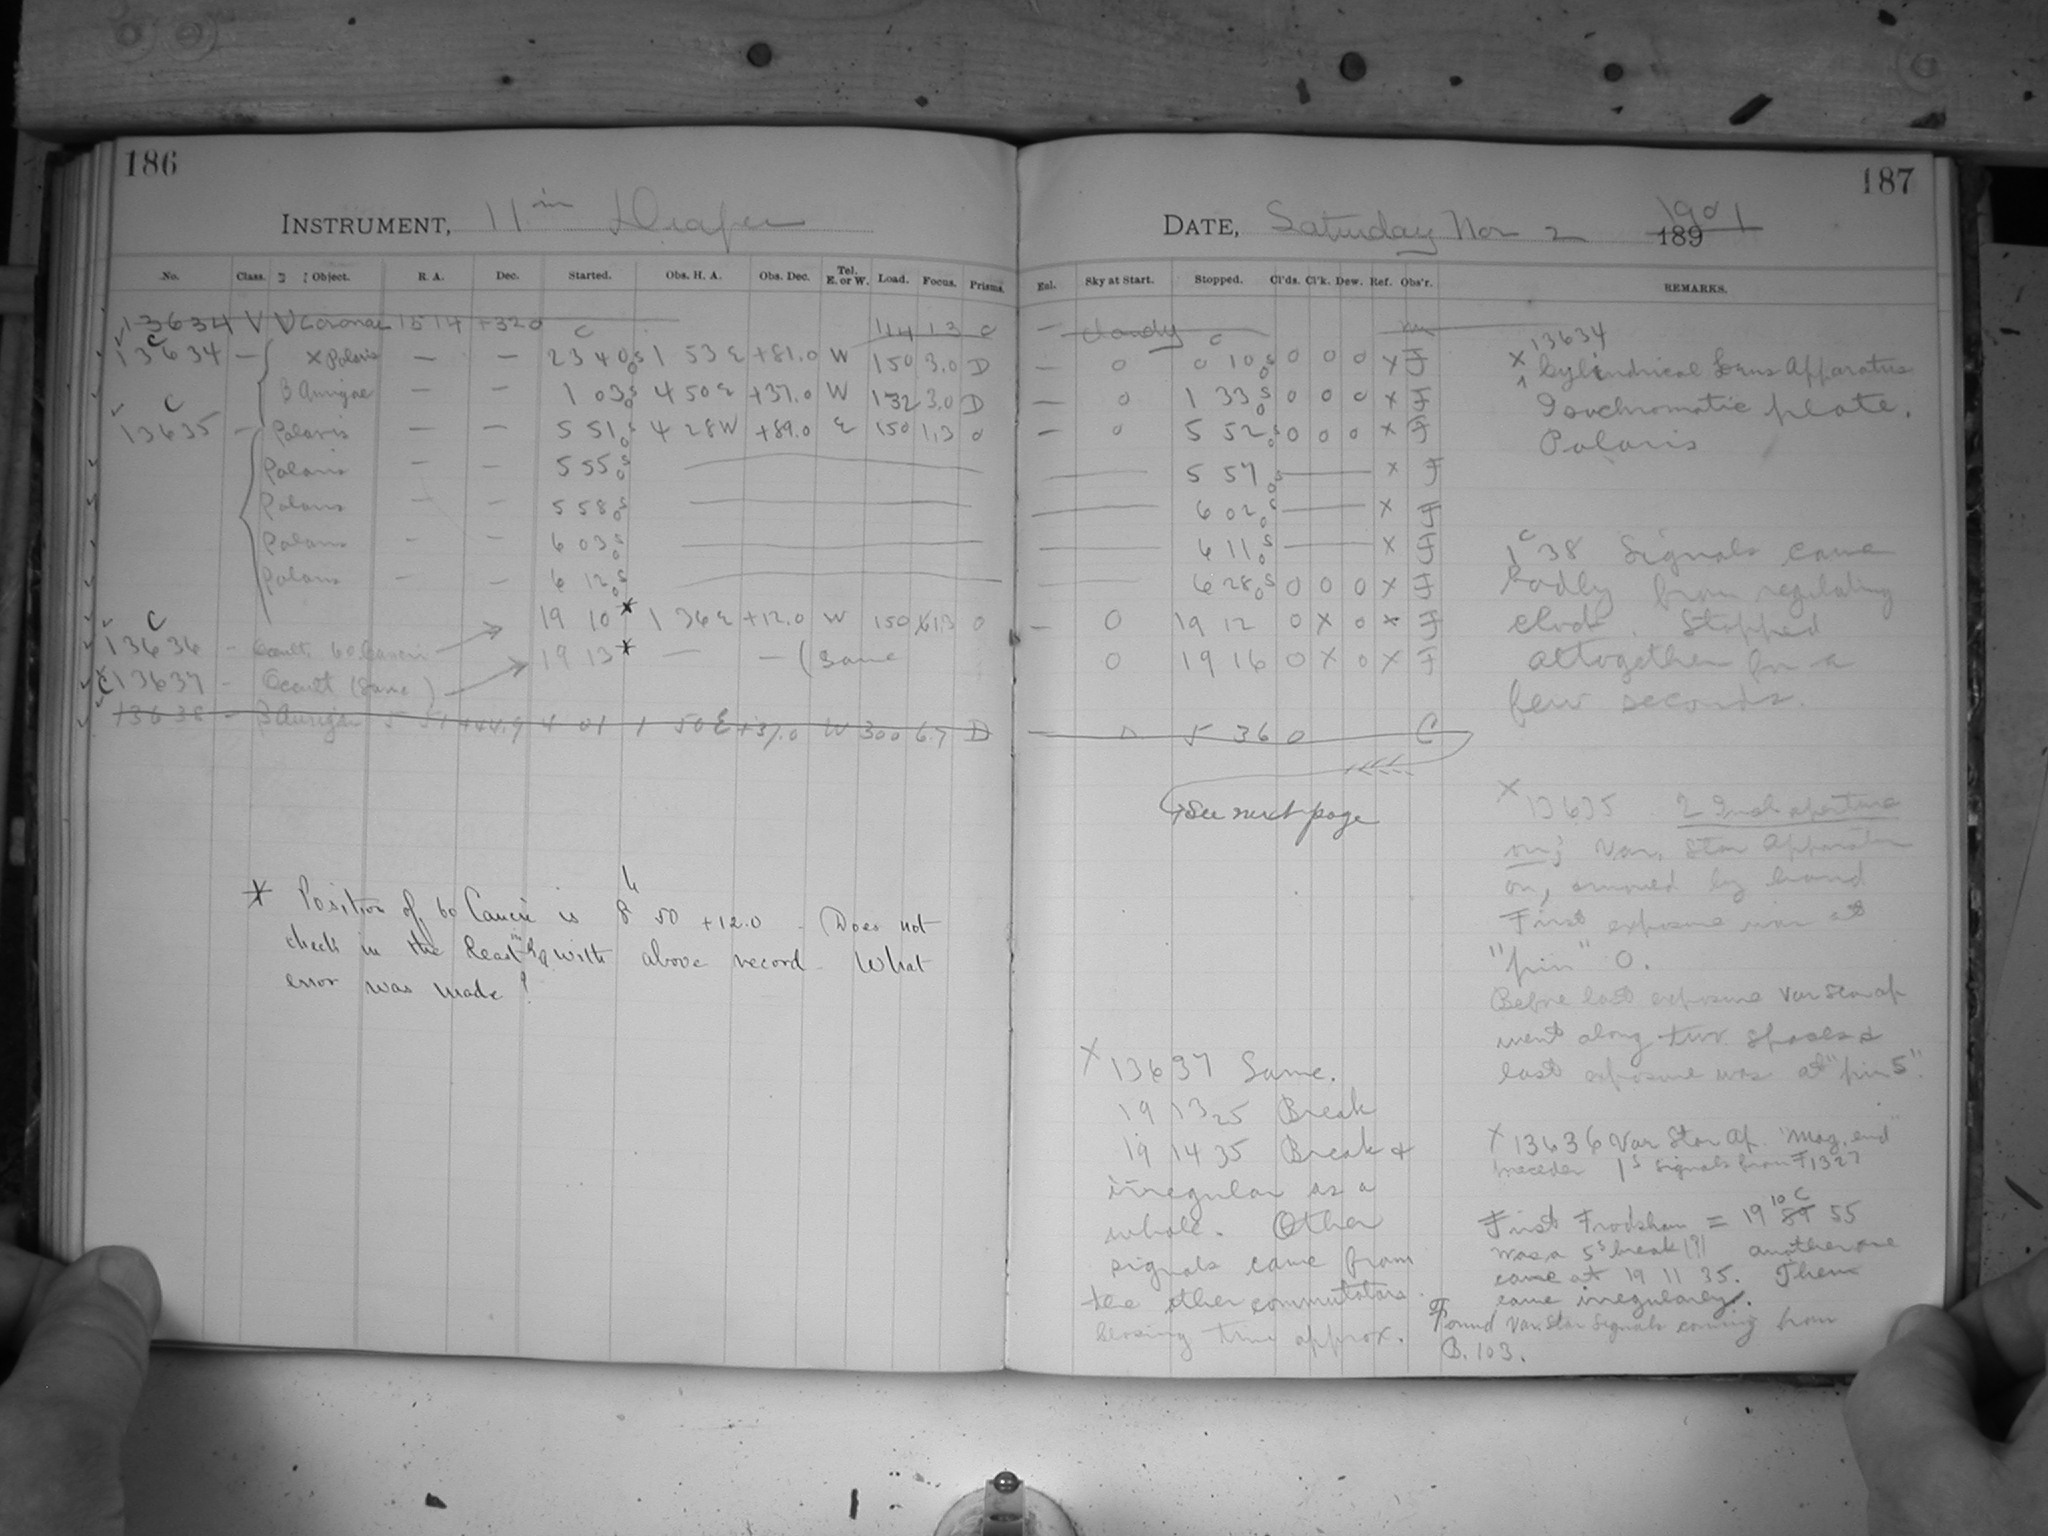 186
INSTRUMENT, 11 in Draper
No. Class. Object. R. A. Dec. Started. Obs. H. A. Obs. Dec. Tel. E. or W. Load. Focus. Prisms.
13634 V V Coronae 15 14 +32.0 144 1.3 0
13634 – x Polaris – – 23 40 0s 1 53 E +81.0 W 150 3.0 D
β Aurigae – – 1 03 0s 4 50 E +37.0 W 132 3.0 D
13635 – Polaris – – 5 51 0s 4 28 W +89.0 E 150 1.3 0
Polaris – – 5 55 0s
Polaris – – 5 58 0s
Polaris – – 6 03 0s
Polaris – – 6 12 0s
19 10 * 1 36 E +12.0 W 150 1.3 0
13636 – Occult. 60 Cancri
19 13 * – – (Same
13637 – Occult (Same)
13638 – β Aurigae 5 51 +44.9 4 01 1 50 E +37.0 W 300 6.7 D
* Position of 60 Cancri is 8h 50 +12.0. Does not
check in the least in RA with above record. What
error was made?
187
DATE, Saturday Nov 2 1901
189
Eul. Sky at Start. Stopped. Cl'ds. Cl'k. Dew. Ref. Obs'r. REMARKS.
– Cloudy
– 0 0 10 0s 0 0 0 x F
– 0 1 33 0s 0 0 0 x F
– 0 5 52 0s 0 0 0 x F
5 57 0s x F
6 02 0s x F
6 11 0s x F
6 28 0s 0 0 0 x F
– 0 19 12 0 x 0 x F
0 19 16 0 x 0 x F
5 36 0 C
See next page
13634
x Cylindrical Lens Apparatus
Isochromatic plate.
Polaris
1 38 Signals came
badly from regulating
clock. Stopped
altogether for a
few seconds.
x 13635 2 Inch aperture
on; Var. Star Apparatus
on, moved by hand
First exposure was at
"pin" 0.
Before last exposure Var Star ap
went along two spaces &
last exposure was at "pin 5".
x 13636 Var Star Ap. "Mag. end"
precedes 1s signals from F1327
First Frodsham = 19 10 55
was a 5s break (?) another one
came at 19 11 35. Then
came irregularly.
Found Var. Star signals coming from
B. 103.
x 13637 Same.
19 13 25 Break
19 14 35 Break &
irregular as a
whole. Other
signals came from
the other commutators.
time approx.